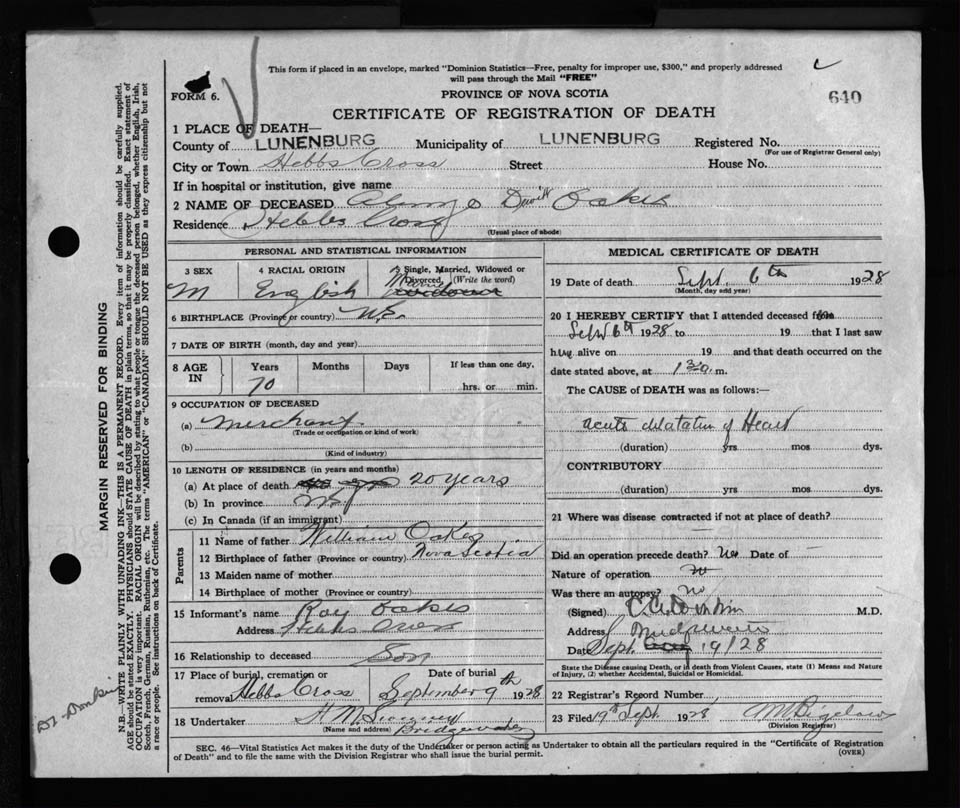 This form if placed in an envelope, marked "Dominion Statistics—Free, penalty for improper use, $300," and properly addressed
will pass through the Mail "FREE"
FORM 6.
PROVINCE OF NOVA SCOTIA
640
CERTIFICATE OF REGISTRATION OF DEATH
1 PLACE OF DEATH—
County of LUNENBURG Municipality of LUNENBURG Registered No.
(For use of Registrar General only)
City or Town Hebbs Cross Street House No.
If in hospital or institution, give name
2 NAME OF DECEASED Oakes
Residence Hebbs Cross
(Usual place of abode)
PERSONAL AND STATISTICAL INFORMATION
3 SEX 4 RACIAL ORIGIN 5 Single, Married, Widowed or
Divorced (Write the word)
M English Married
6 BIRTHPLACE (Province or country) N.S.
7 DATE OF BIRTH (month, day and year)
8 AGE IN Years Months Days If less than one day,
70 hrs. or min.
9 OCCUPATION OF DECEASED
(a) Merchant
(Trade or occupation or kind of work)
(b)
(Kind of industry)
10 LENGTH OF RESIDENCE (in years and months)
(a) At place of death 20 years
(b) In province
(c) In Canada (if an immigrant)
Parents
11 Name of father William Oakes
12 Birthplace of father (Province or country) Nova Scotia
13 Maiden name of mother
14 Birthplace of mother (Province or country)
15 Informant's name Roy Oakes
Address Hebbs Cross
16 Relationship to deceased Son
17 Place of burial, cremation or Date of burial
removal Hebbs Cross September 9th 1928
18 Undertaker
(Name and address) Bridgewater
MEDICAL CERTIFICATE OF DEATH
19 Date of death Sept. 6th 1928
(Month, day and year)
20 I HEREBY CERTIFY that I attended deceased from
Sept 6th 1928 to 19 that I last saw
h alive on 19 and that death occurred on the
date stated above, at m.
The CAUSE of DEATH was as follows:—
Acute dilatation of Heart
(duration) yrs mos dys.
CONTRIBUTORY
(duration) yrs mos dys.
21 Where was disease contracted if not at place of death?
Did an operation precede death? No Date of —
Nature of operation
Was there an autopsy? No
(Signed) M.D.
Address Bridgewater
Date Sept. 19/28
State the Disease causing Death, or in death from Violent Causes, state (1) Means and Nature
of Injury, (2) whether Accidental, Suicidal or Homicidal.
22 Registrar's Record Number
23 Filed 19th Sept. 1928 Bigelow
(Division Registrar)
SEC. 46—Vital Statistics Act makes it the duty of the Undertaker or person acting as Undertaker to obtain all the particulars required in the "Certificate of Registration
of Death" and to file the same with the Division Registrar who shall issue the burial permit.
(OVER)
MARGIN RESERVED FOR BINDING
N.B.—WRITE PLAINLY WITH UNFADING INK—THIS IS A PERMANENT RECORD. Every item of information should be carefully supplied.
AGE should be stated EXACTLY. PHYSICIANS should STATE CAUSE OF DEATH in plain terms, so that it may be properly classified. Exact statement of
OCCUPATION is very important. RACIAL ORIGIN will be described by stating to what people or tongue the deceased person belonged, whether English, Irish,
Scotch, French, German, Russian, Ruthenian, etc. The terms "AMERICAN" or "CANADIAN" SHOULD NOT BE USED as they express citizenship but not
a race or people. See instructions on back of Certificate.